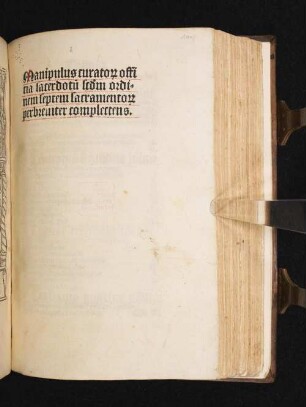 Manipulus curatoꝝ offi
cia sacerdotū scḋm ordi-
nem septem sacramentoꝝ
perbreuiter complectens.